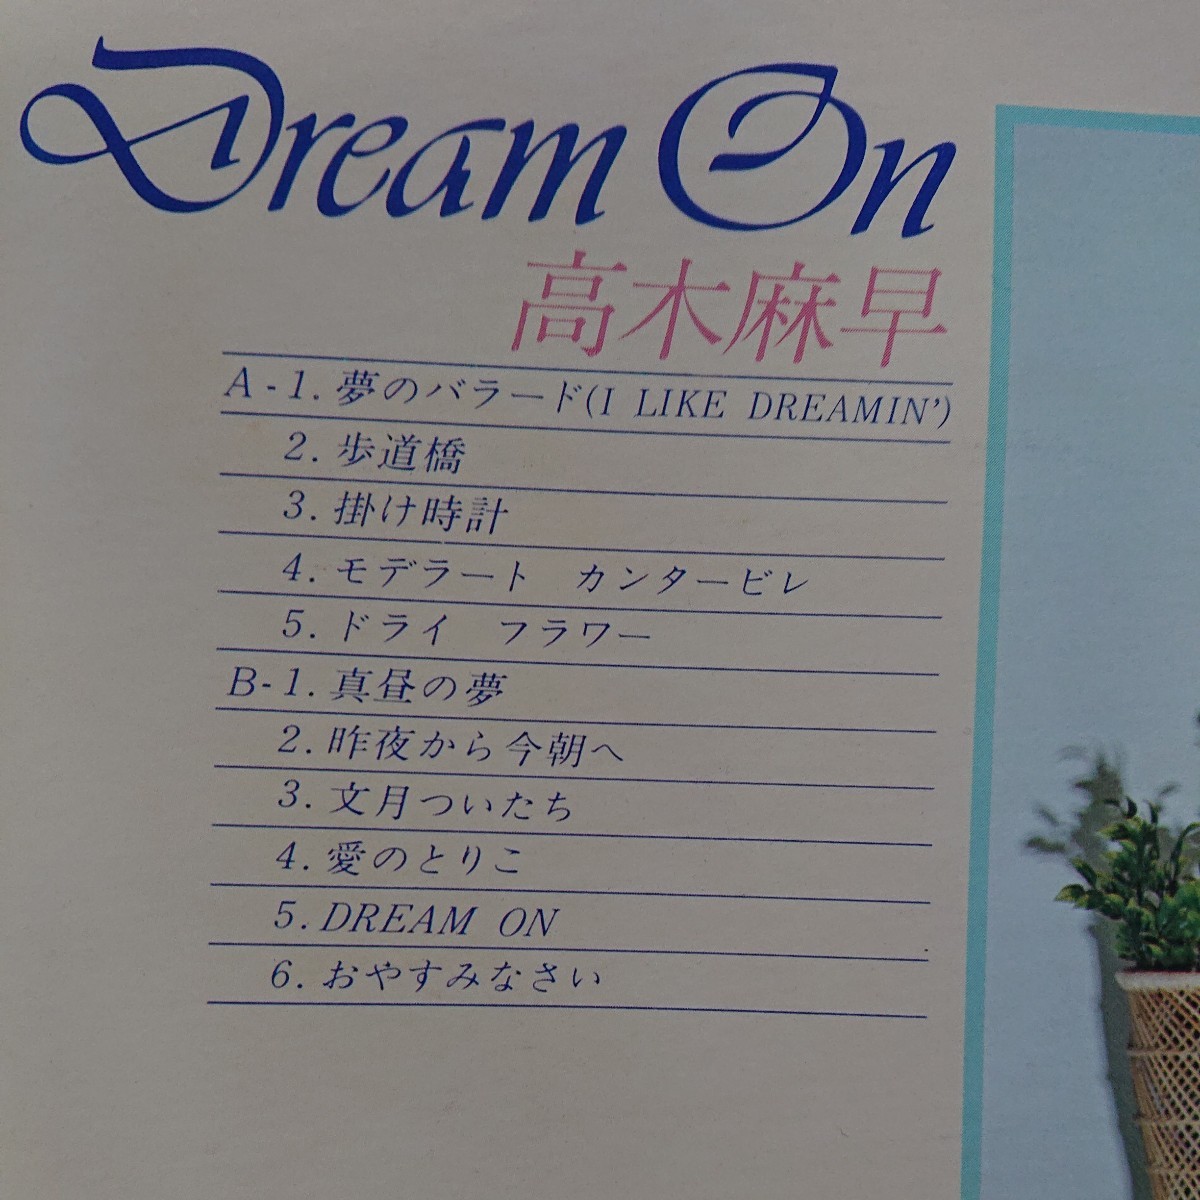 Dream On
高木麻早
A-1. 夢のバラード(I LIKE DREAMIN')
2. 歩道橋
3. 掛け時計
4. モデラート　カンタービレ
5. ドライ　フラワー
B-1. 真昼の夢
2. 昨夜から今朝へ
3. 文月ついたち
4. 愛のとりこ
5. DREAM ON
6. おやすみなさい